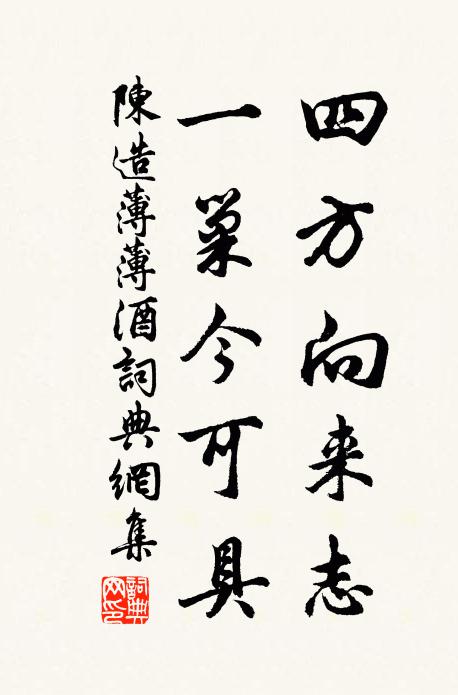 四方向来志
一巢今可具
陳造薄薄酒詞典網集
詞典网印